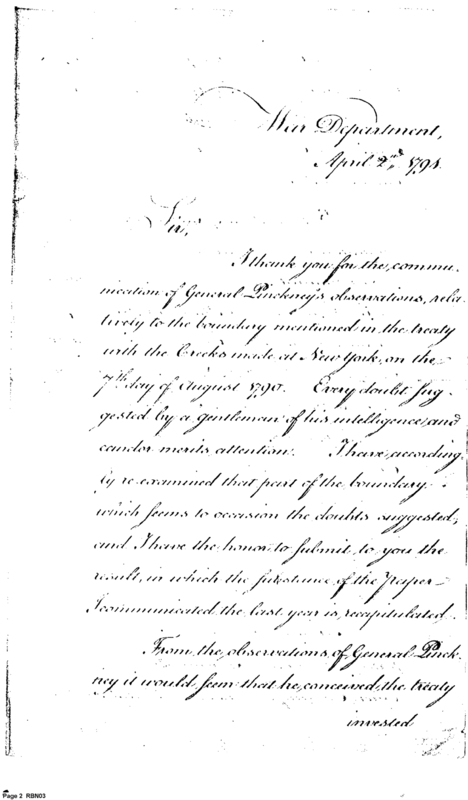 War Department,
April 2nd, 1791.
Sir,
I thank you for the commu-
nication of General Pinckney's observations, rela-
tively to the boundary mentioned in the treaty
with the Creeks made at New York, on the
7th day of August 1790. Every doubt sug-
gested by a gentleman of his intelligence and
candor merits attention. I have according-
ly re-examined that part of the boundary
which seems to occasion the doubts suggested,
and I have the honor to submit, to you the
result, in which the substance of the paper
I communicated the last year is recapitulated.
From the observations of General Pinck-
ney it would seem that he conceived the treaty
invested
Page 2 RBN03